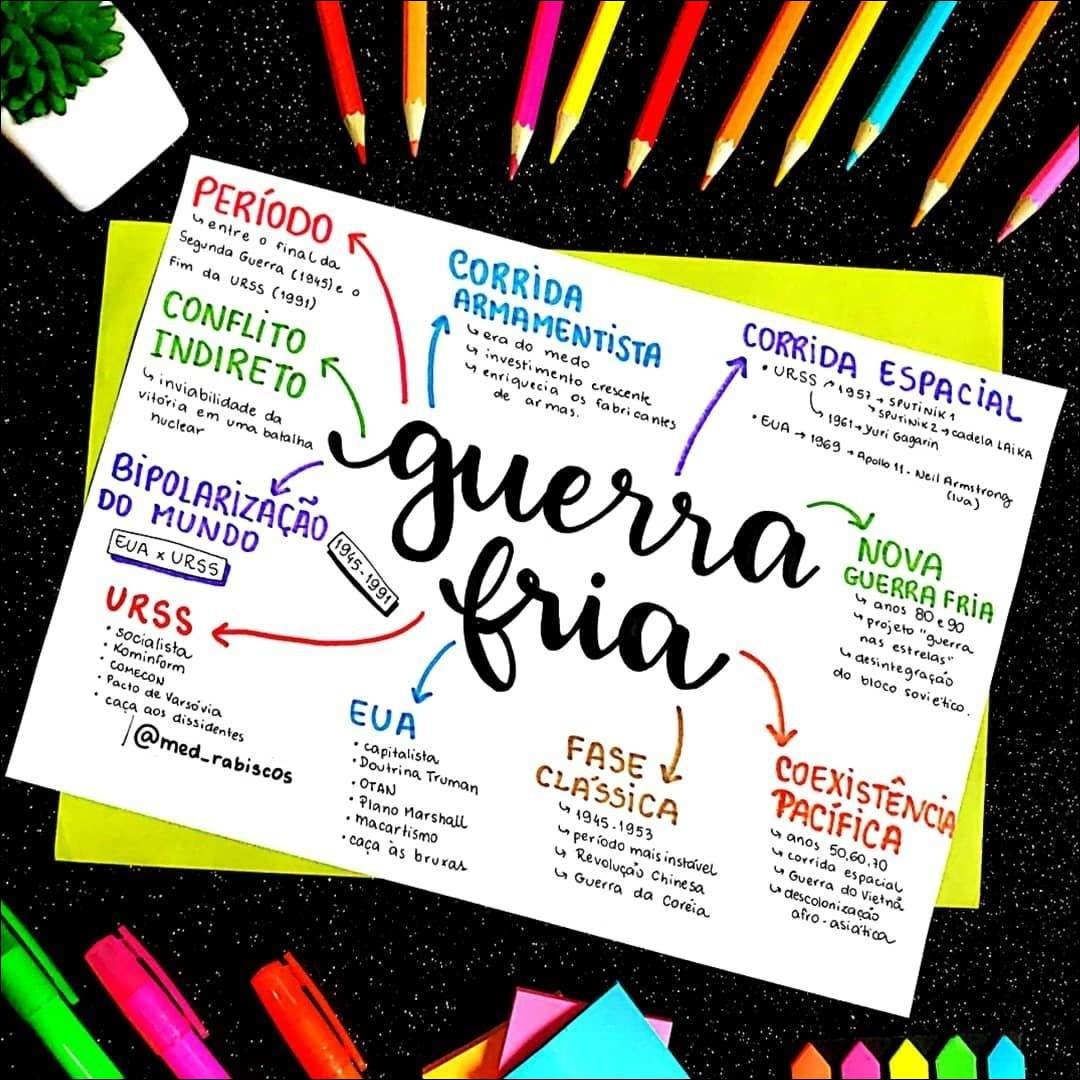 PERÍODO
↳ entre o final da
Segunda Guerra (1945) e o
Fim da URSS (1991)
CONFLITO
INDIRETO
↳ inviabilidade da
vitória em uma batalha
nuclear
BIPOLARIZAÇÃO
DO MUNDO
EUA x URSS
URSS
• socialista
• Kominform
• COMECON
• Pacto de Varsóvia
• caça aos dissidentes
@med_rabiscos
CORRIDA
ARMAMENTISTA
↳ era do medo
↳ investimento crescente
↳ enriquecia os fabricantes
de armas.
CORRIDA ESPACIAL
• URSS → 1957 → SPUTINIK 1
↘ SPUTINIK 2 → cadela LAIKA
↳ 1961 → Yuri Gagarin
• EUA → 1969 → Apollo 11 - Neil Armstrong
(lua)
guerra
fria
1945-1991
NOVA
GUERRA FRIA
↳ anos 80 e 90
↳ projeto "guerra
nas estrelas"
↳ desintegração
do bloco soviético.
EUA
• capitalista
• Doutrina Truman
• OTAN
• Plano Marshall
• macartismo
• caça às bruxas
FASE
CLÁSSICA
↳ 1945-1953
↳ período mais instável
↳ Revolução Chinesa
↳ Guerra da Coréia
COEXISTÊNCIA
PACÍFICA
↳ anos 50, 60, 70
↳ corrida espacial
↳ Guerra do Vietnã
↳ descolonização
afro-asiática